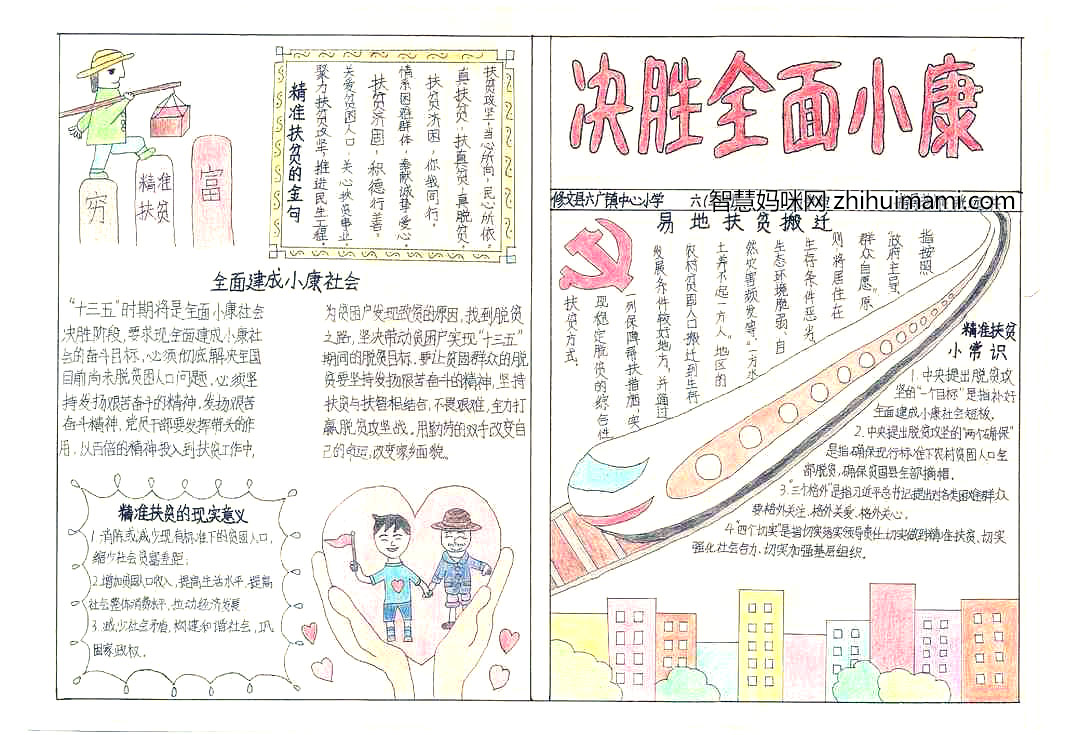 决胜全面小康
修文县六广镇中心小学
六(
智慧妈咪网 zhihuimami.com
穷
精准
扶贫
富
精准扶贫的金句
扶贫攻坚:当心所向,民心所依
真扶贫:扶真贫:真脱贫,
扶贫济困,你我同行,
情系困难群体,奉献诚挚爱心,
扶贫济困,积德行善,
关爱贫困人口,关心扶贫事业,
聚力扶贫攻坚,推进民生工程,
全面建成小康社会
“十三五”时期将是全面小康社会
决胜阶段,要求现全面建成小康社
会的奋斗目标,必须彻底解决全国
目前尚未脱贫困人口问题,必须坚
持发扬艰苦奋斗的精神,发扬艰苦
奋斗精神,党员干部要发挥带头的作
用,以百倍的精神投入到扶贫工作中,
为贫困户发现致贫的原因,找到脱贫
之路,坚决带动贫困户实现“十三五”
期间的脱贫目标,要让贫困群众的脱
贫要坚持发扬艰苦奋斗的精神,坚持
扶贫与扶智相结合,不畏艰难,全力打
赢脱贫攻坚战,用勤劳的双手改变自
己的命运,改变家乡面貌。
精准扶贫的现实意义
1.消除或减少现有标准下的贫困人口,
缩少社会贫富差距;
2.增加贫困人口收入,提高生活水平,提高
社会整体消费水平,拉动经济发展
3.减少社会矛盾,构建和谐社会,巩
固家政权。
易地扶贫搬迁
指按照
“政府主导,
群众自愿”原
则将居住在
生存条件恶劣,
生态环境脆弱、自
然灾害频发等,“一方水
土养不起一方人”地区的
农村贫困人口搬迁到生存
发展条件较好地方,并通过
一列保障帮扶措施,实
现稳定脱贫的综合性
扶贫方式。
精准扶贫
小常识
1.中央提出脱贫攻
坚的“一个目标”是指补好
全面建成小康社会短板。
2.中央提出脱贫攻坚的“两个确保”
是指确保现行标准下农村贫困人口全
部脱贫,确保贫困县全部摘帽。
3.“三个格外”是指习近平总书记提出对各类困难群众
要格外关注、格外关爱、格外关心。
4.“四个切实”是指切实落实领导责任,切实做到精准扶贫,切实
强化社会合力、切实加强基层组织。